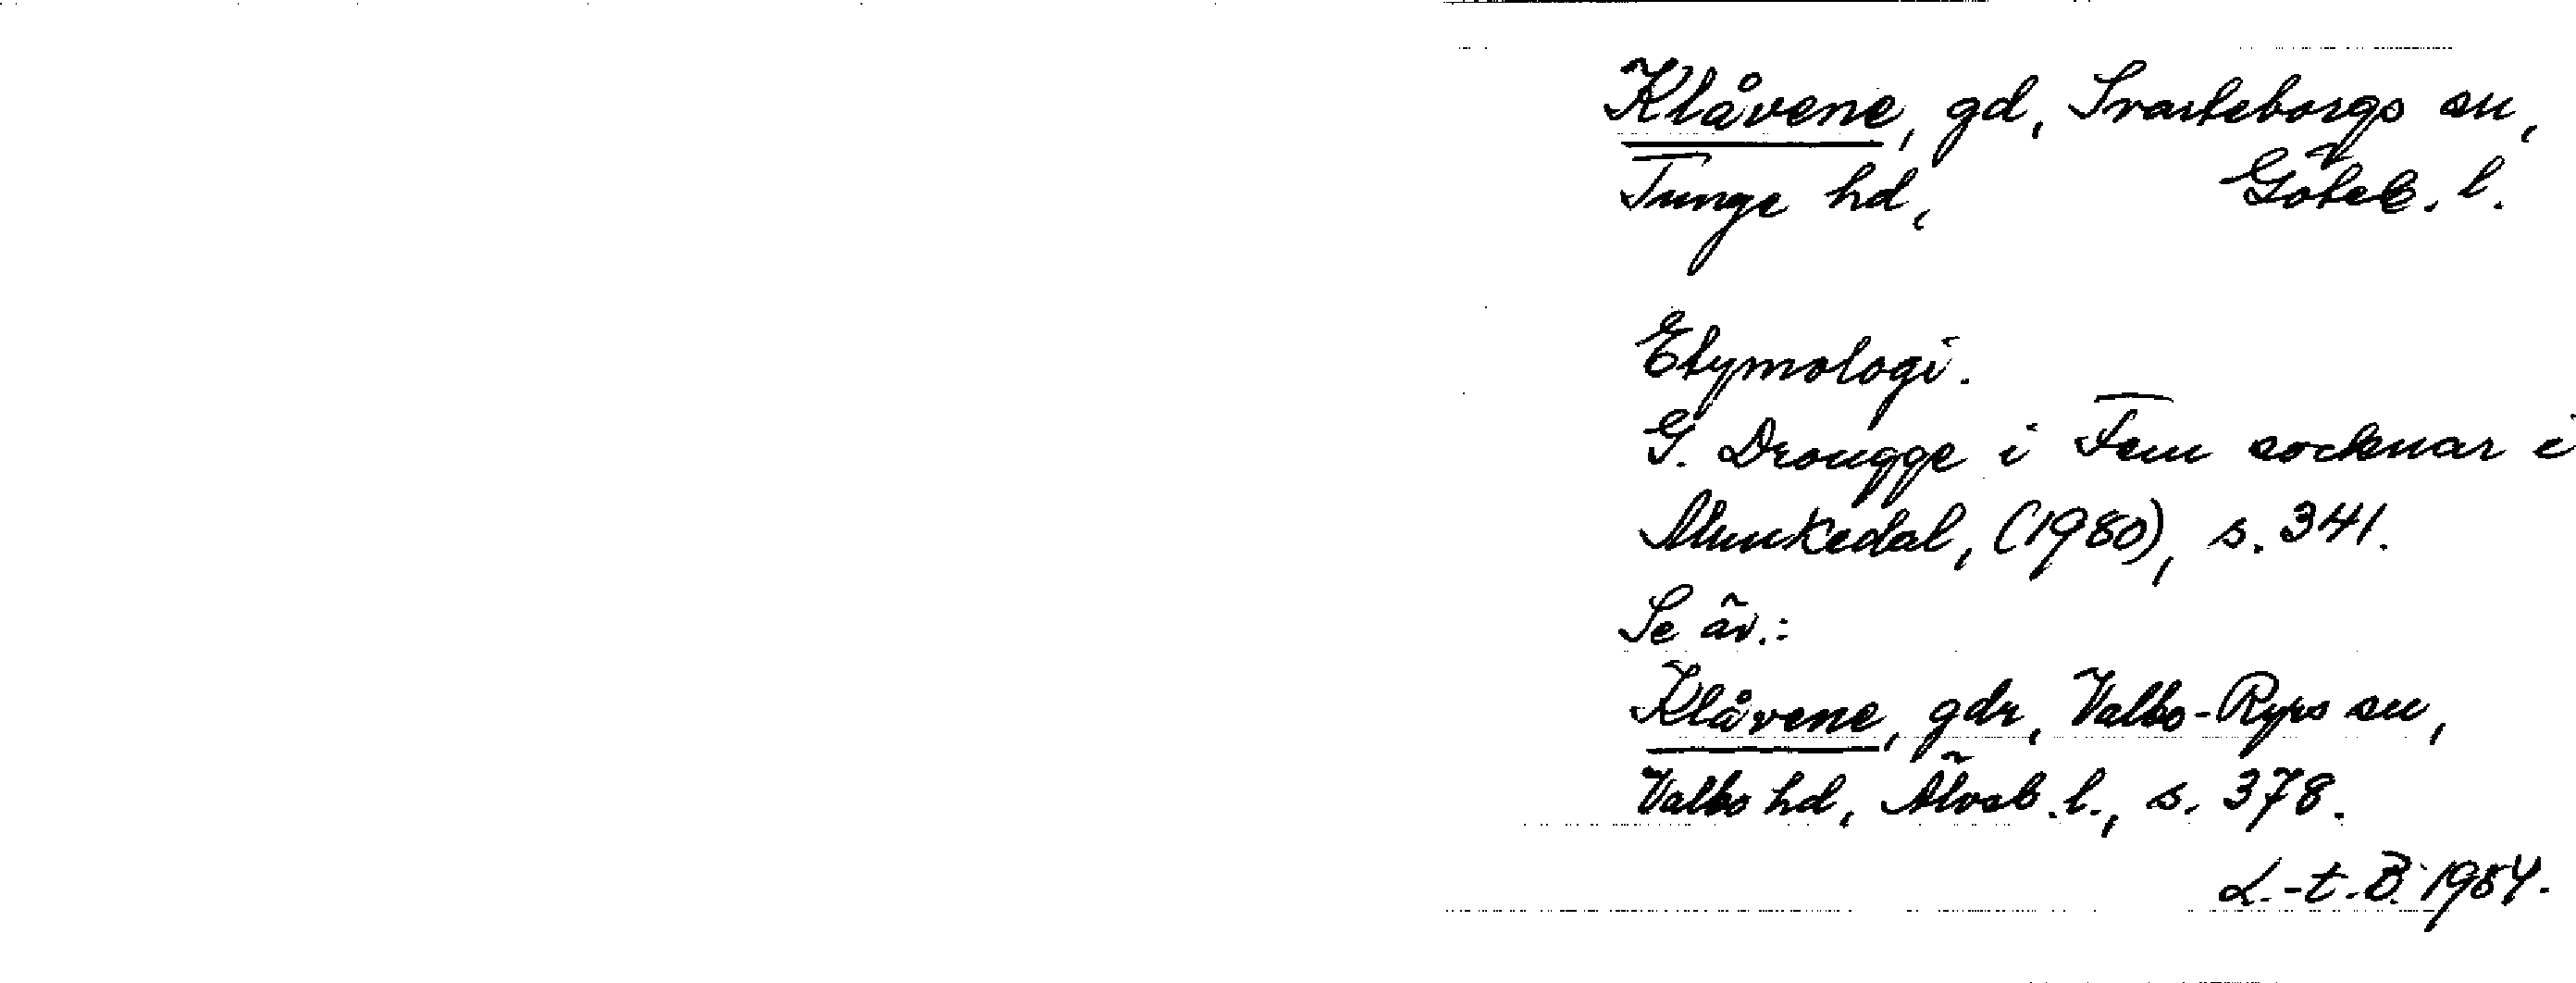 Klåvene, gd, Svarteborgs sn,
Tunge hd, Göteb. l.
Etymologi.
G. Drougge i Fem socknar i
Munkedal, (1980), s. 341.
Se äv.:
Klåvene, gdr, Valbo-Ryrs sn,
Valbo hd, Älvsb. l., s. 378.
L.-t. B. 1984.